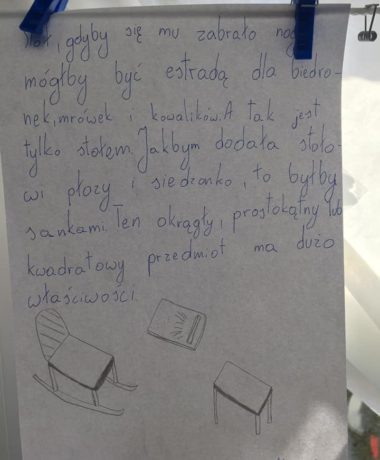 gdyby się mu zabrało nogi
mógłby być estradą dla biedro-
nek, mrówek i kowalików. A tak jest
tylko stołem. Jakbym dodała stoło-
wi płozy i siedzonko, to byłby
sankami. Ten okrągły, prostokątny lub
kwadratowy przedmiot ma dużo
właściwości.